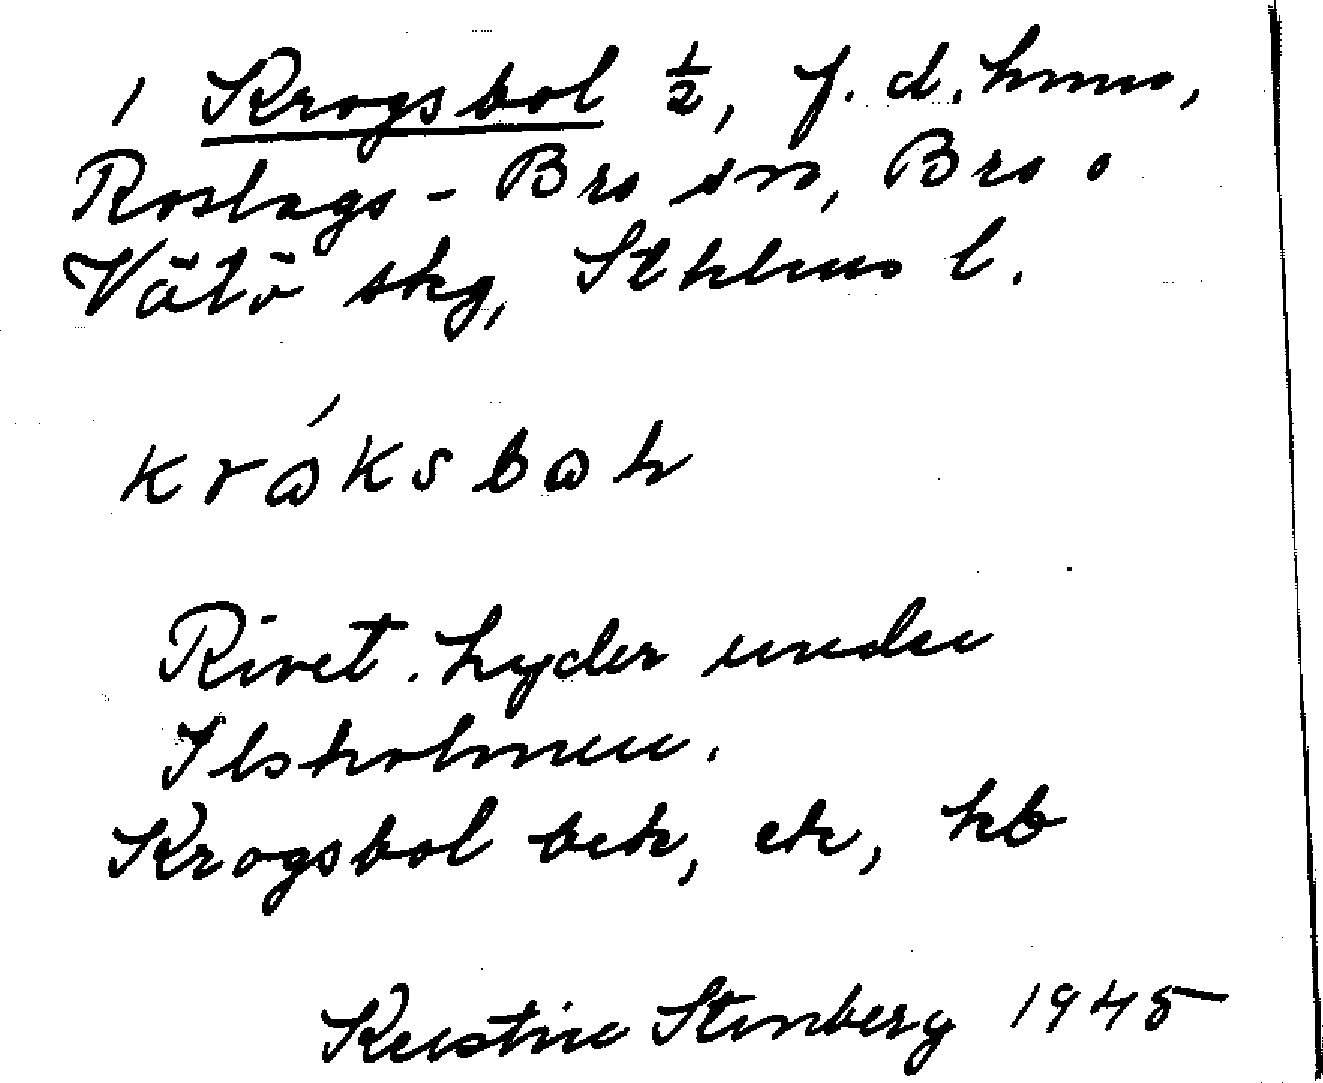 1 Krogsbol ½, f.d. hmn,
Roslags-Bro sn, Bro o
Vätö skg, Sthlms l.
Rivet. Lyder under
Ilsholmen.
Krogsbol bek, ek, kb
Kerstin Stenberg 1945